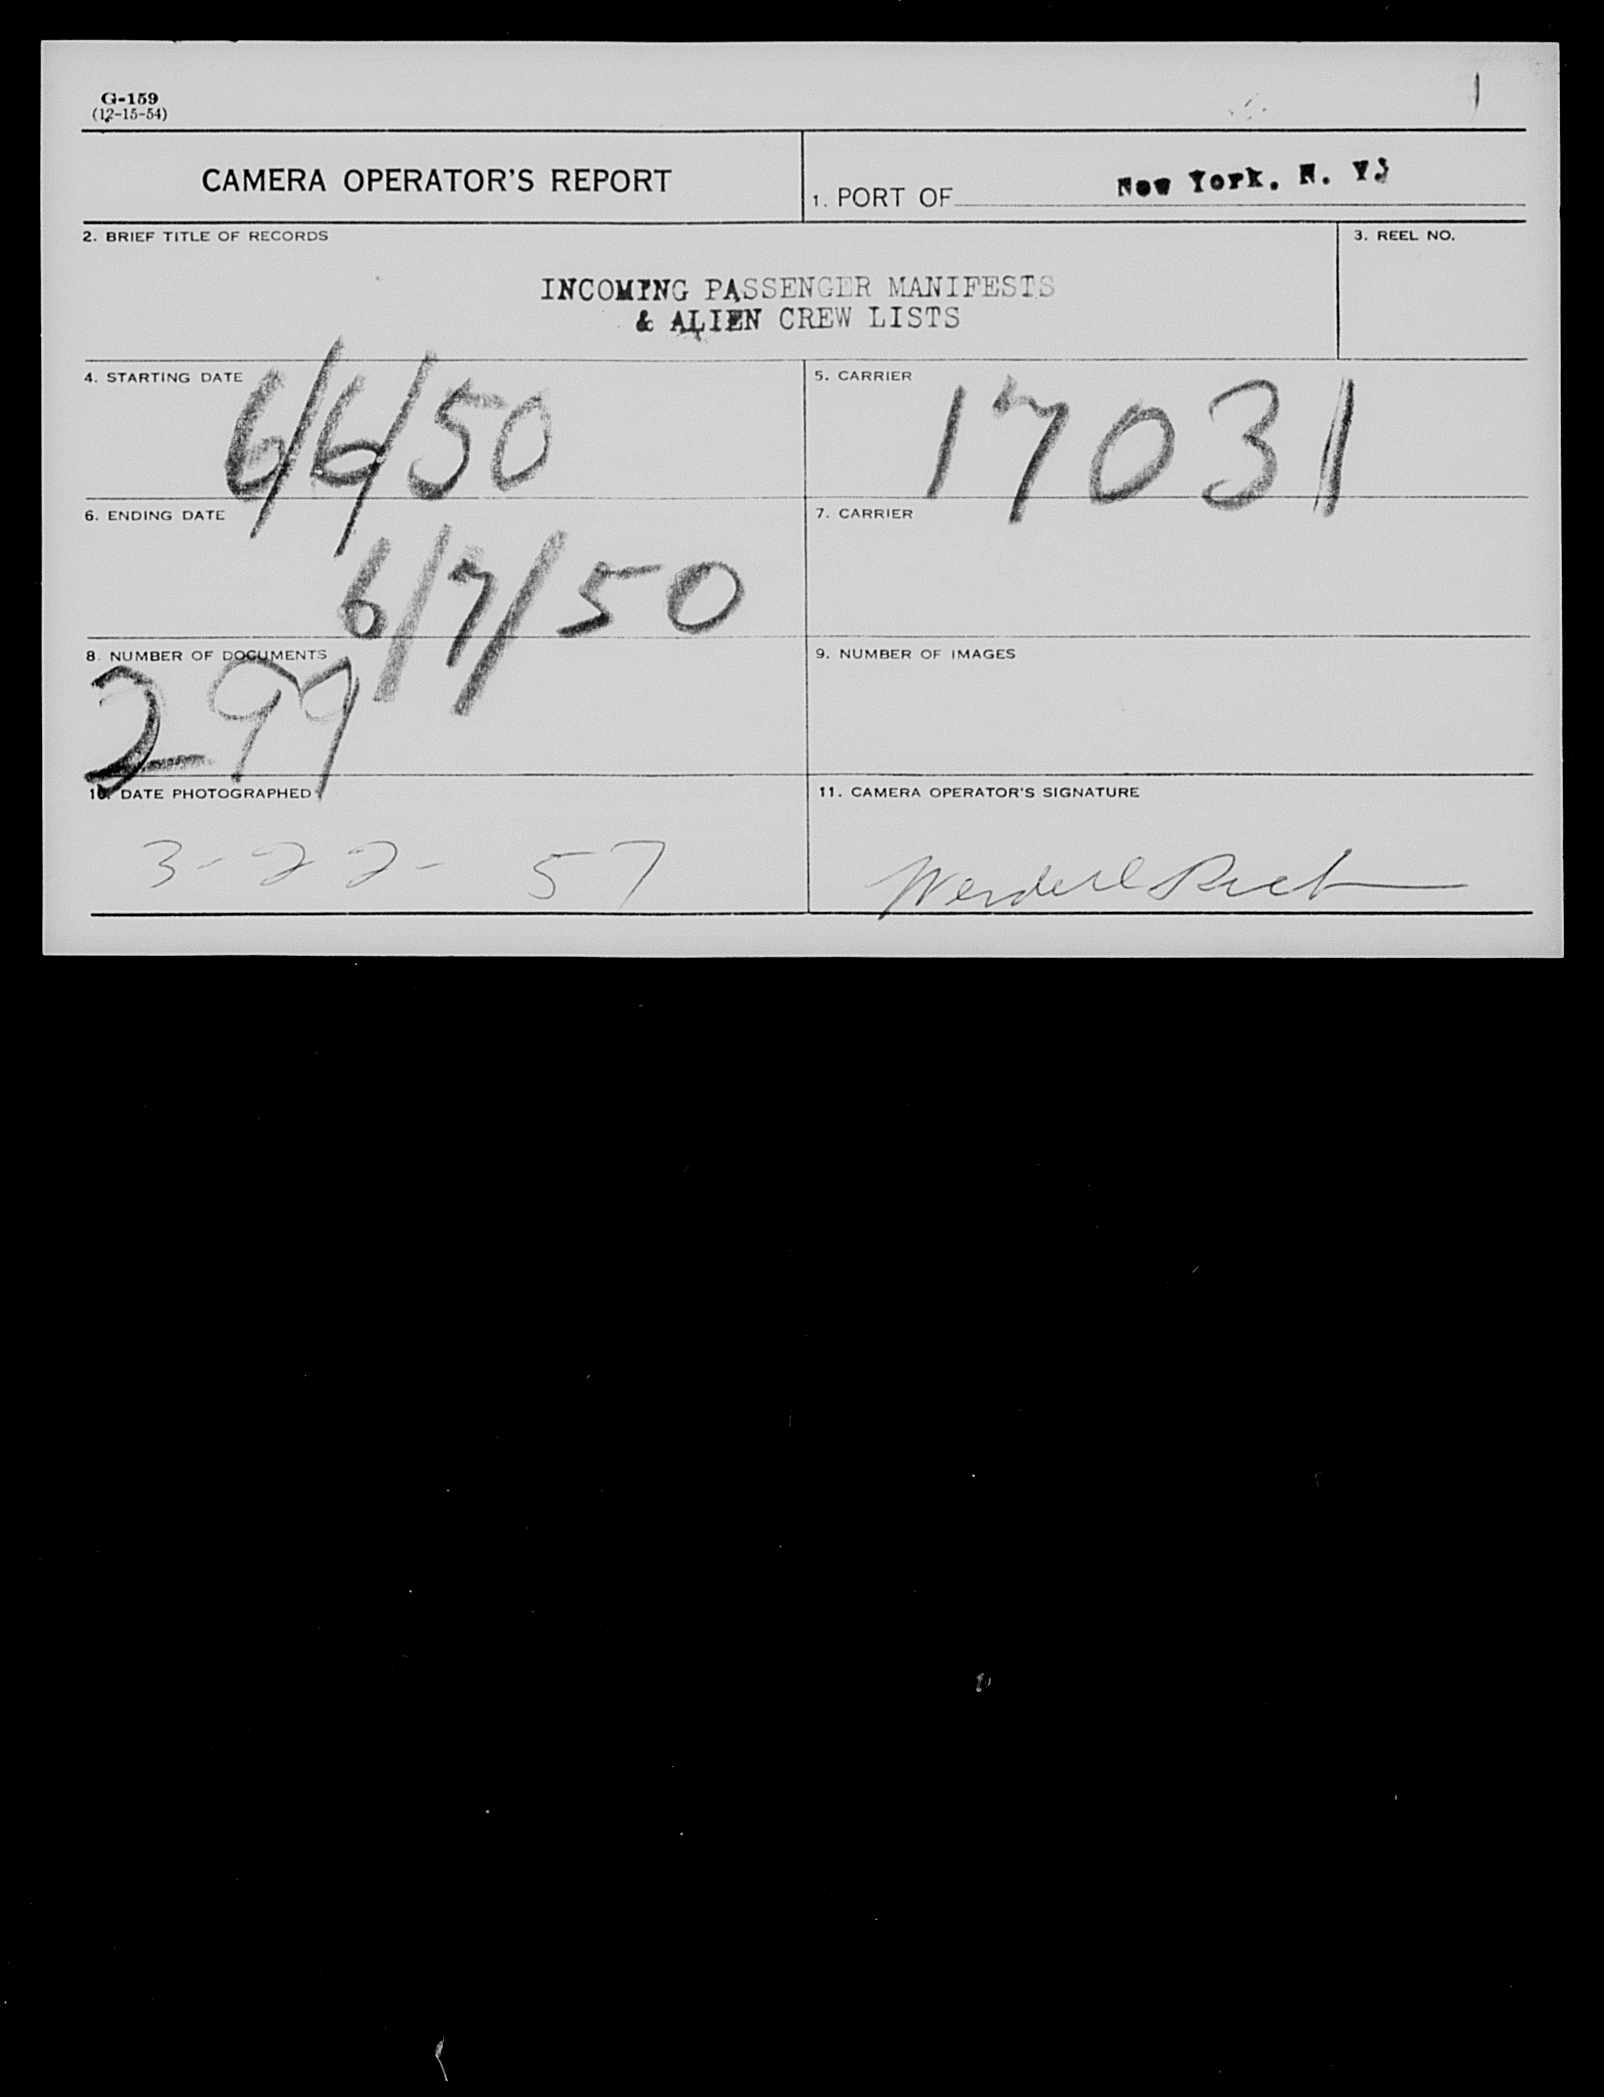 G-159
(12-15-54)
1
CAMERA OPERATOR'S REPORT
1. PORT OF New York, N. Y.
2. BRIEF TITLE OF RECORDS
3. REEL NO.
INCOMING PASSENGER MANIFESTS
& ALIEN CREW LISTS
4. STARTING DATE
6/6/50
5. CARRIER
17031
6. ENDING DATE
6/7/50
7. CARRIER
8. NUMBER OF DOCUMENTS
299
9. NUMBER OF IMAGES
10. DATE PHOTOGRAPHED
3-22-57
11. CAMERA OPERATOR'S SIGNATURE